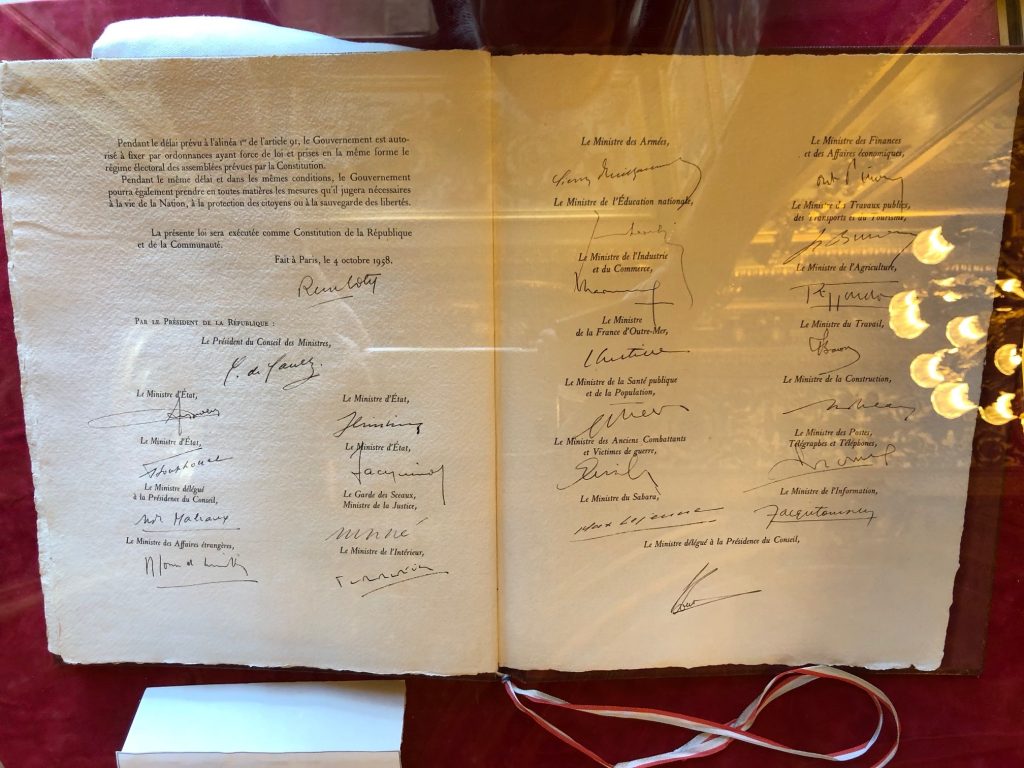 Pendant le délai prévu à l'alinéa 1er de l'article 91, le Gouvernement est auto-
risé à fixer par ordonnances ayant force de loi et prises en la même forme le
régime électoral des assemblées prévues par la Constitution.
Pendant le même délai et dans les mêmes conditions, le Gouvernement
pourra également prendre en toutes matières les mesures qu'il jugera nécessaires
à la vie de la Nation, à la protection des citoyens ou à la sauvegarde des libertés.
La présente loi sera exécutée comme Constitution de la République
et de la Communauté.
Fait à Paris, le 4 octobre 1958.
René Coty
Par le Président de la République :
Le Président du Conseil des Ministres,
C. de Gaulle
Le Ministre d'État,
Le Ministre d'État,
Le Ministre d'État,
Le Ministre d'État,
Jacquinot
Le Ministre délégué
à la Présidence du Conseil,
Malraux
Le Garde des Sceaux,
Ministre de la Justice,
Le Ministre des Affaires étrangères,
Le Ministre de l'Intérieur,
Le Ministre des Armées,
Le Ministre de l'Éducation nationale,
Le Ministre de l'Industrie
et du Commerce,
Le Ministre
de la France d'Outre-Mer,
Le Ministre de la Santé publique
et de la Population,
Le Ministre des Anciens Combattants
et Victimes de guerre,
Le Ministre du Sahara,
Max Lejeune
Le Ministre des Finances
et des Affaires économiques,
Le Ministre des Travaux publics,
des Transports et du Tourisme,
Le Ministre de l'Agriculture,
Le Ministre du Travail,
Le Ministre de la Construction,
Le Ministre des Postes,
Télégraphes et Téléphones,
Le Ministre de l'Information,
Le Ministre délégué à la Présidence du Conseil,